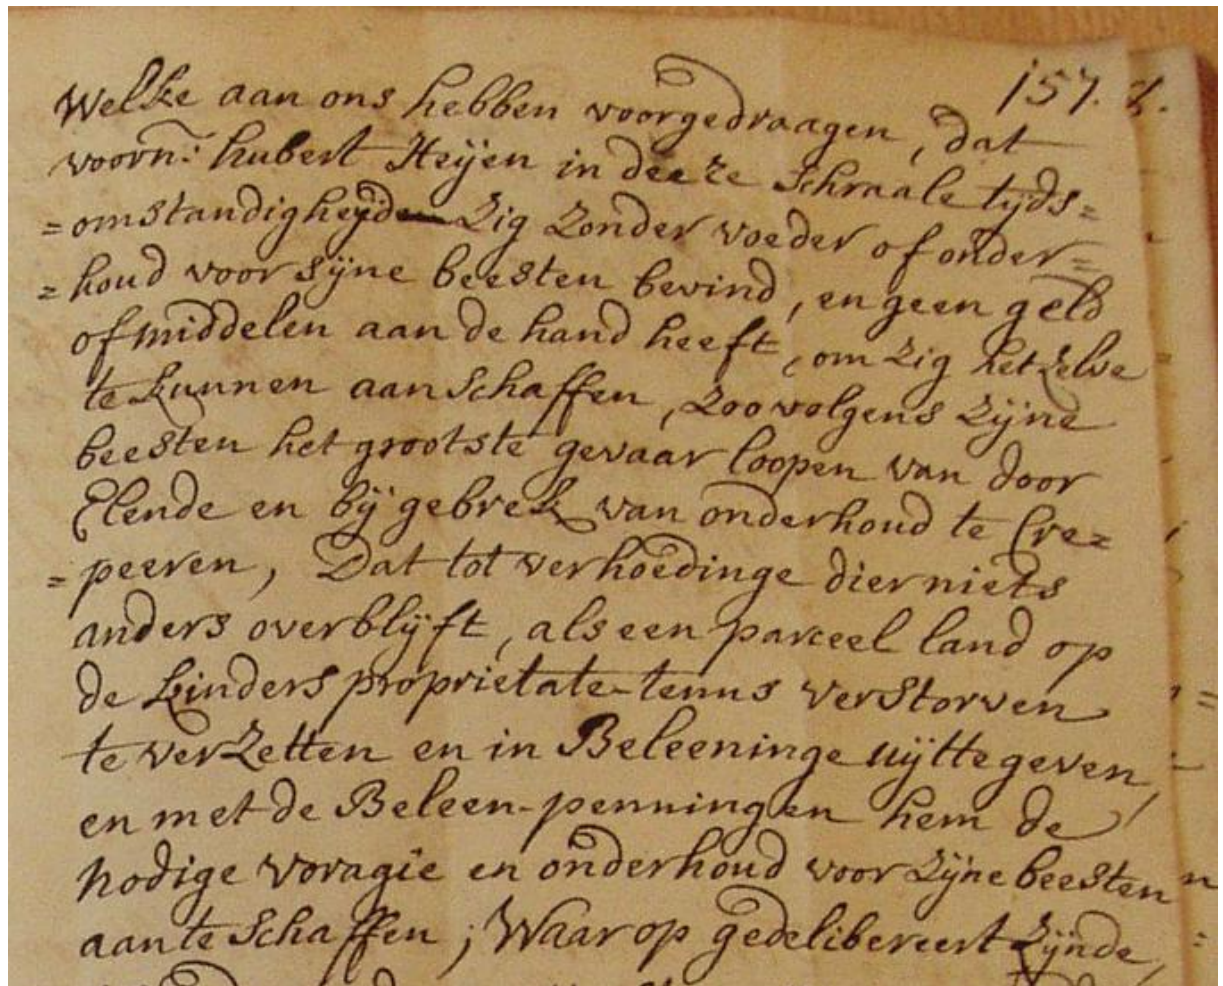 157. 2.
Welke aan ons hebben voorgedraagen, dat
voorn: hubert Heijen in deeze Schraale tyds=
=omstandigheyde Zig Zonder voeder of onder=
=houd voor sijne beesten bevind, en geen geld
of middelen aan de hand heeft, om Zig het Zelve
te kunnen aanschaffen, Zoo volgens Zijne
beesten het grootste gevaar loopen van door
Elende en bij gebrek van onderhoud te Cre=
=peeren, Dat tot verhoedinge dier niets
anders overblijft, als een parceel land op
de kinders proprietate-tenus verstorven
te verZetten en in Beleeninge uijt te geven,
en met de Beleen-penningen hem de
nodige voragie en onderhoud voor Zijne beesten
aan te schaffen; Waarop gedelibereert Zijnde,